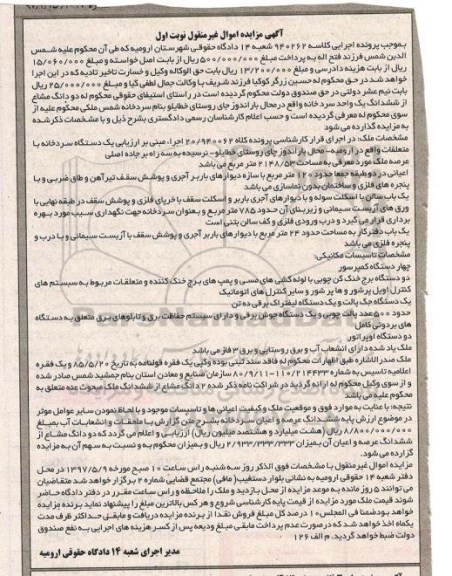 آگهی مزایده اموال غیرمنقول نوبت اول
بموجب پرونده اجرایی کلاسه ۹۴۰۲۶۲ شعبه ۱۴ دادگاه حقوقی شهرستان ارومیه که طی آن محکوم علیه شمس
الدین شمس فرزند فتح اله به پرداخت مبلغ ۵۰۰/۰۰۰/۰۰۰ ریال از بابت اصل خواسته و مبلغ ۱۵/۰۶۰/۰۰۰
ریال از بابت هزینه دادرسی و مبلغ ۱۳/۲۰۰/۰۰۰ ریال بابت حق الوکاله وکیل و خسارت تاخیر تادیه که در این اجرا
خواهد شد در حق محکوم له حسین زرگر کوکیا فرزند شریف با وکالت جمال لطفی کیا و مبلغ ۲۵/۰۰۰/۰۰۰ ریال
بابت نیم عشر دولتی در حق صندوق دولت محکوم گردیده است در راستای استیفای حقوقی محکوم له دو دانگ مشاع
از ششدانگ یک واحد سردخانه واقع در محال باراندوز چای روستای خطایلو بنام سردخانه شمس ملکی محکوم علیه از
سوی محکوم له معرفی گردیده است و حسب اعلام کارشناسان رسمی دادگستری بشرح ذیل و با مشخصات ذکر شده
به مزایده گذارده می شود
مشخصات ملک: در اجرای قرار کارشناسی پرونده کلاسه ۲۰/۹۴۰۰۶۲ اجراء مبنی بر ارزیابی یک دستگاه سردخانه با
متعلقات واقع در ارومیه- محال باراندوز چای روستای خطایلو- نرسیده به سه راه بر جاده اصلی
عرصه ملک مورد معرفی به مساحت ۲۱۴۸/۵۳ متر مربع می باشد
اعیانی در دو طبقه جمعا حدود ۱۲۰ متر مربع با سازه دیوارهای باربر آجری و پوشش سقف تیرآهن و طاق ضربی و با
پنجره های فلزی و ساختمان بدون نماسازی می باشد
یک باب سالن با اسکلت سوله و با دیوارهای آجری باربر و اسکلت سقف با خرپای فلزی و پوشش سقف در طبقه نهایی با
ورق های آزبست سیمانی و زیربنای آن حدود ۷۸۵ متر مربع و بعنوان سردخانه جهت نگهداری سیب مورد بهره
برداری قرار می گیرد و درب ورودی فلزی و کف سالن بتنی است
یک باب دفتر کار به مساحت حدود ۲۴ متر مربع با دیوارهای باربر آجری و پوشش سقف با آزبست سیمانی و با درب و
پنجره فلزی می باشد
مشخصات تاسیسات مکانیکی:
چهار دستگاه کمپرسور
دو دستگاه برج خنک کن چوبی با لوله کشی های مسی و پمپ های برج خنک کننده و متعلقات مربوط به سیستم های
کنترل اویل پرشر و ها پر شور و سایر کنترل های اتوماتیک
یک دستگاه جک پالت و یک دستگاه لیفتراک برقی ده تن
حدود ۵۰۰ عدد پالت چوبی و یک دستگاه جوش برقی و دارای سیستم حفاظت برق و تابلوهای برق متعلق به دستگاه
های برودتی کامل
دو دستگاه اوپراتور
ملک یاد شده دارای انشعاب آب و برق روستایی و برق ۳ فاز می باشد
ملک صدرالاشاره طبق اظهارات محکوم له فاقد سند ثبتی بوده وکپی یک فقره قولنامه به تاریخ ۸۵/۵/۲۰ و یک فقره
اعلامیه تاسیس به شماره ۱۱۰/۲۱۴۴۳۳-۸۰/۹/۱۱ سازمان صنایع و معادن استان بنام جمشید شمس صادر شده
و از سوی وکیل محکوم له ارائه گردید در شراکت نامه ذکر شده ۲ دانگ مشاع از ششدانگ ملک مبحوث عنه متعلق به
محکوم علیه می باشد
نتیجه: با عنایت به موارد فوق و موقعیت ملک و کیفیت اعیانی ها و تاسیسات موجود و با لحاظ نمودن سایر عوامل موثر
در موضوع ارزش پایه ششدانگ عرصه و اعیان سردخانه بشرح متن گزارش با ملحقات و انشعابات آب بمبلغ
۸/۸۰۰/۰۰۰/۰۰۰ ریال (هشت میلیارد و هشتصد میلیون ریال) ارزیابی و اعلام می گردد که دو دانگ مشاع از
ششدانگ عرصه و اعیان آن بمیزان ۲/۹۳۳/۳۳۳/۳۳۳ ریال و بمیزان محکوم به و نسبت به سهم آن به مزایده
گزارده می شود.
مزایده اموال غیرمنقول با مشخصات فوق الذکر روز سه شنبه راس ساعت ۱۰ صبح مورخه ۱۳۹۷/۵/۹ در محل
دفتر شعبه ۱۴ حقوقی ارومیه به نشانی بلوار دستغیب (مافی) مجتمع قضایی شماره ۲ برگزار خواهد شد متقاضیان
می توانند ۵ روز مانده به موعد مزایده از محل بازدید و ملک را ملاحظه و راس ساعت مقرر در دفتر دادگاه حاضر
شوند قیمت ملک مورد مزایده از قیمت پایه کارشناسی شروع و هر کس بالاترین مبلغ را پیشنهاد نماید برنده مزایده
خواهد بود ضمنا فی المجلس ۱۰ درصد کل مبلغ فروش نقدا از برنده مزایده دریافت و مابقی حداکثر ظرف مدت
یکماه اخذ خواهد شد که در صورت عدم پرداخت مابقی مبلغ ودیعه پس از کسر هزینه های اجرایی به نفع صندوق
دولت ضبط خواهد گردید. م الف ۱۲۶
مدیر اجرای شعبه ۱۴ دادگاه حقوقی ارومیه